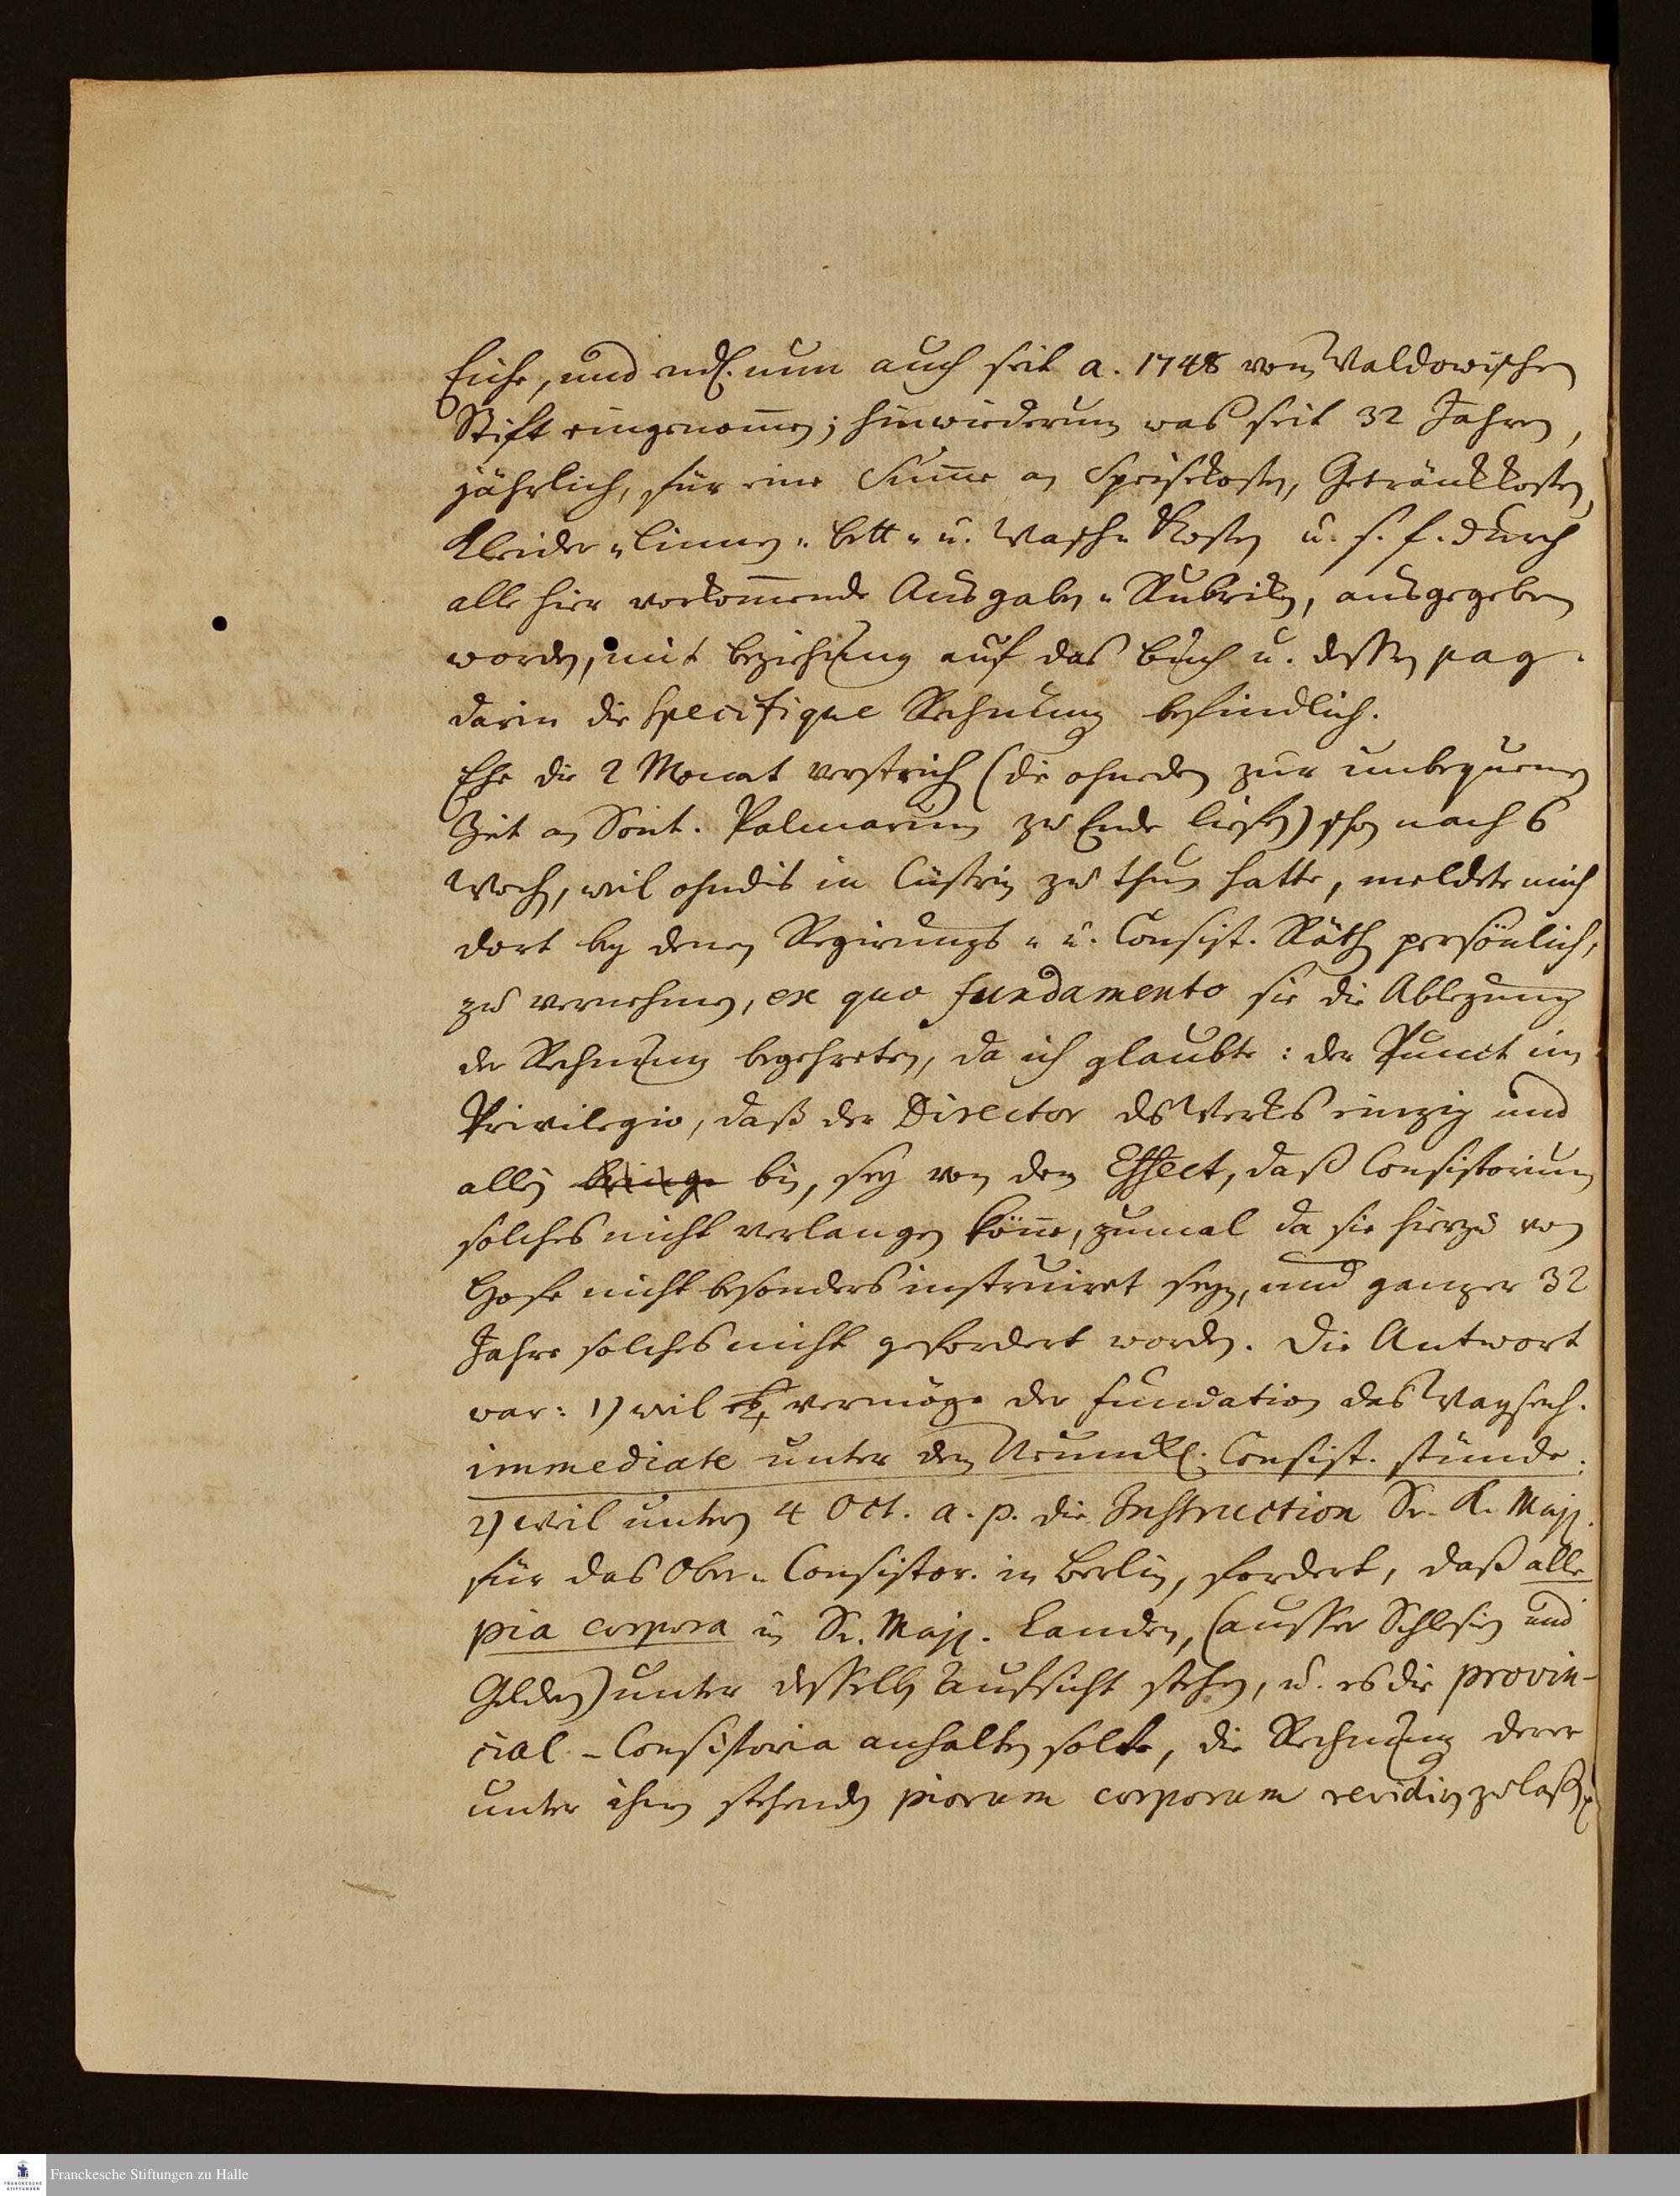 Eiche, und endl. nun auch seit a. 1748 vom Waldowischen
Stift eingenom̅en; hinwiederum was seit 32 Jahren,
jährlich, für eine Sum̅e an Speisekosten, Getränkkosten,
Kleider- Linnen- Bett- u. Wasch- Kosten u. s. f. durch
alle hier vorkom̅ende Ausgaben- Rubriken, ausgegeben
worden, mit beziehung auf das buch u. dessen pag.
darin die Specifique Rechnung befindlich.
Ehe die 2 Monat verstrichen (die ohnedem zur unbequemen
Zeit am Sont. Palmarum zu Ende liefen) schon nach 6
Wochen, weil ohndis in Cüstrin zu thun hatte, meldete mich
dort bey denen Regierungs- u. Consist. Räthen persönlich,
zu vernehmen, ex quo fundamento sie die Ablegung
der Rechnung begehreten, da ich glaubte: der Punct im
Privilegio, daß der Director des Werkes einzig und
allein bin, sey von dem Effect, daß Consistorium
solches nicht verlangen kön̅e, zumal da sie hierzu von
Hofe nicht besonders instruiret seyn, und ganzer 32
Jahre solches nicht gefordert worden. Die Antwort
war: 1) weil vermöge der Fundation das Waysenh.
immediate unter dem Neumärkl. Consist. stünde;
2) weil unterm 4 Oct. a. p. die Instruction Sr. K. Maj.
für das Ober- Consistor. in Berlin, fordert, daß alle
pia corpora in Sr. Maj. Landen, (ausser Schlesien und
Geldern) unter desselben Aufsicht stehen, u. es die provin-
cial- Consistoria anhalten solte, die Rechnung derer
unter ihnen stehenden piorum corporum revidiren zu lassen
Franckesche Stiftungen zu Halle
FRANCKESCHE
STIFTUNGEN